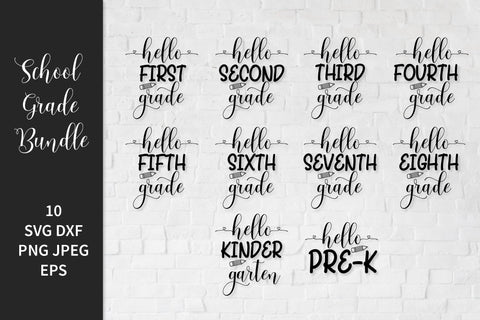 School
Grade
Bundle
10
SVG DXF
PNG JPEG
EPS
hello
FIRST
grade
hello
SECOND
grade
hello
THIRD
grade
hello
FOURTH
grade
hello
FIFTH
grade
hello
SIXTH
grade
hello
SEVENTH
grade
hello
EIGHTH
grade
hello
KINDER
garten
hello
PRE-K